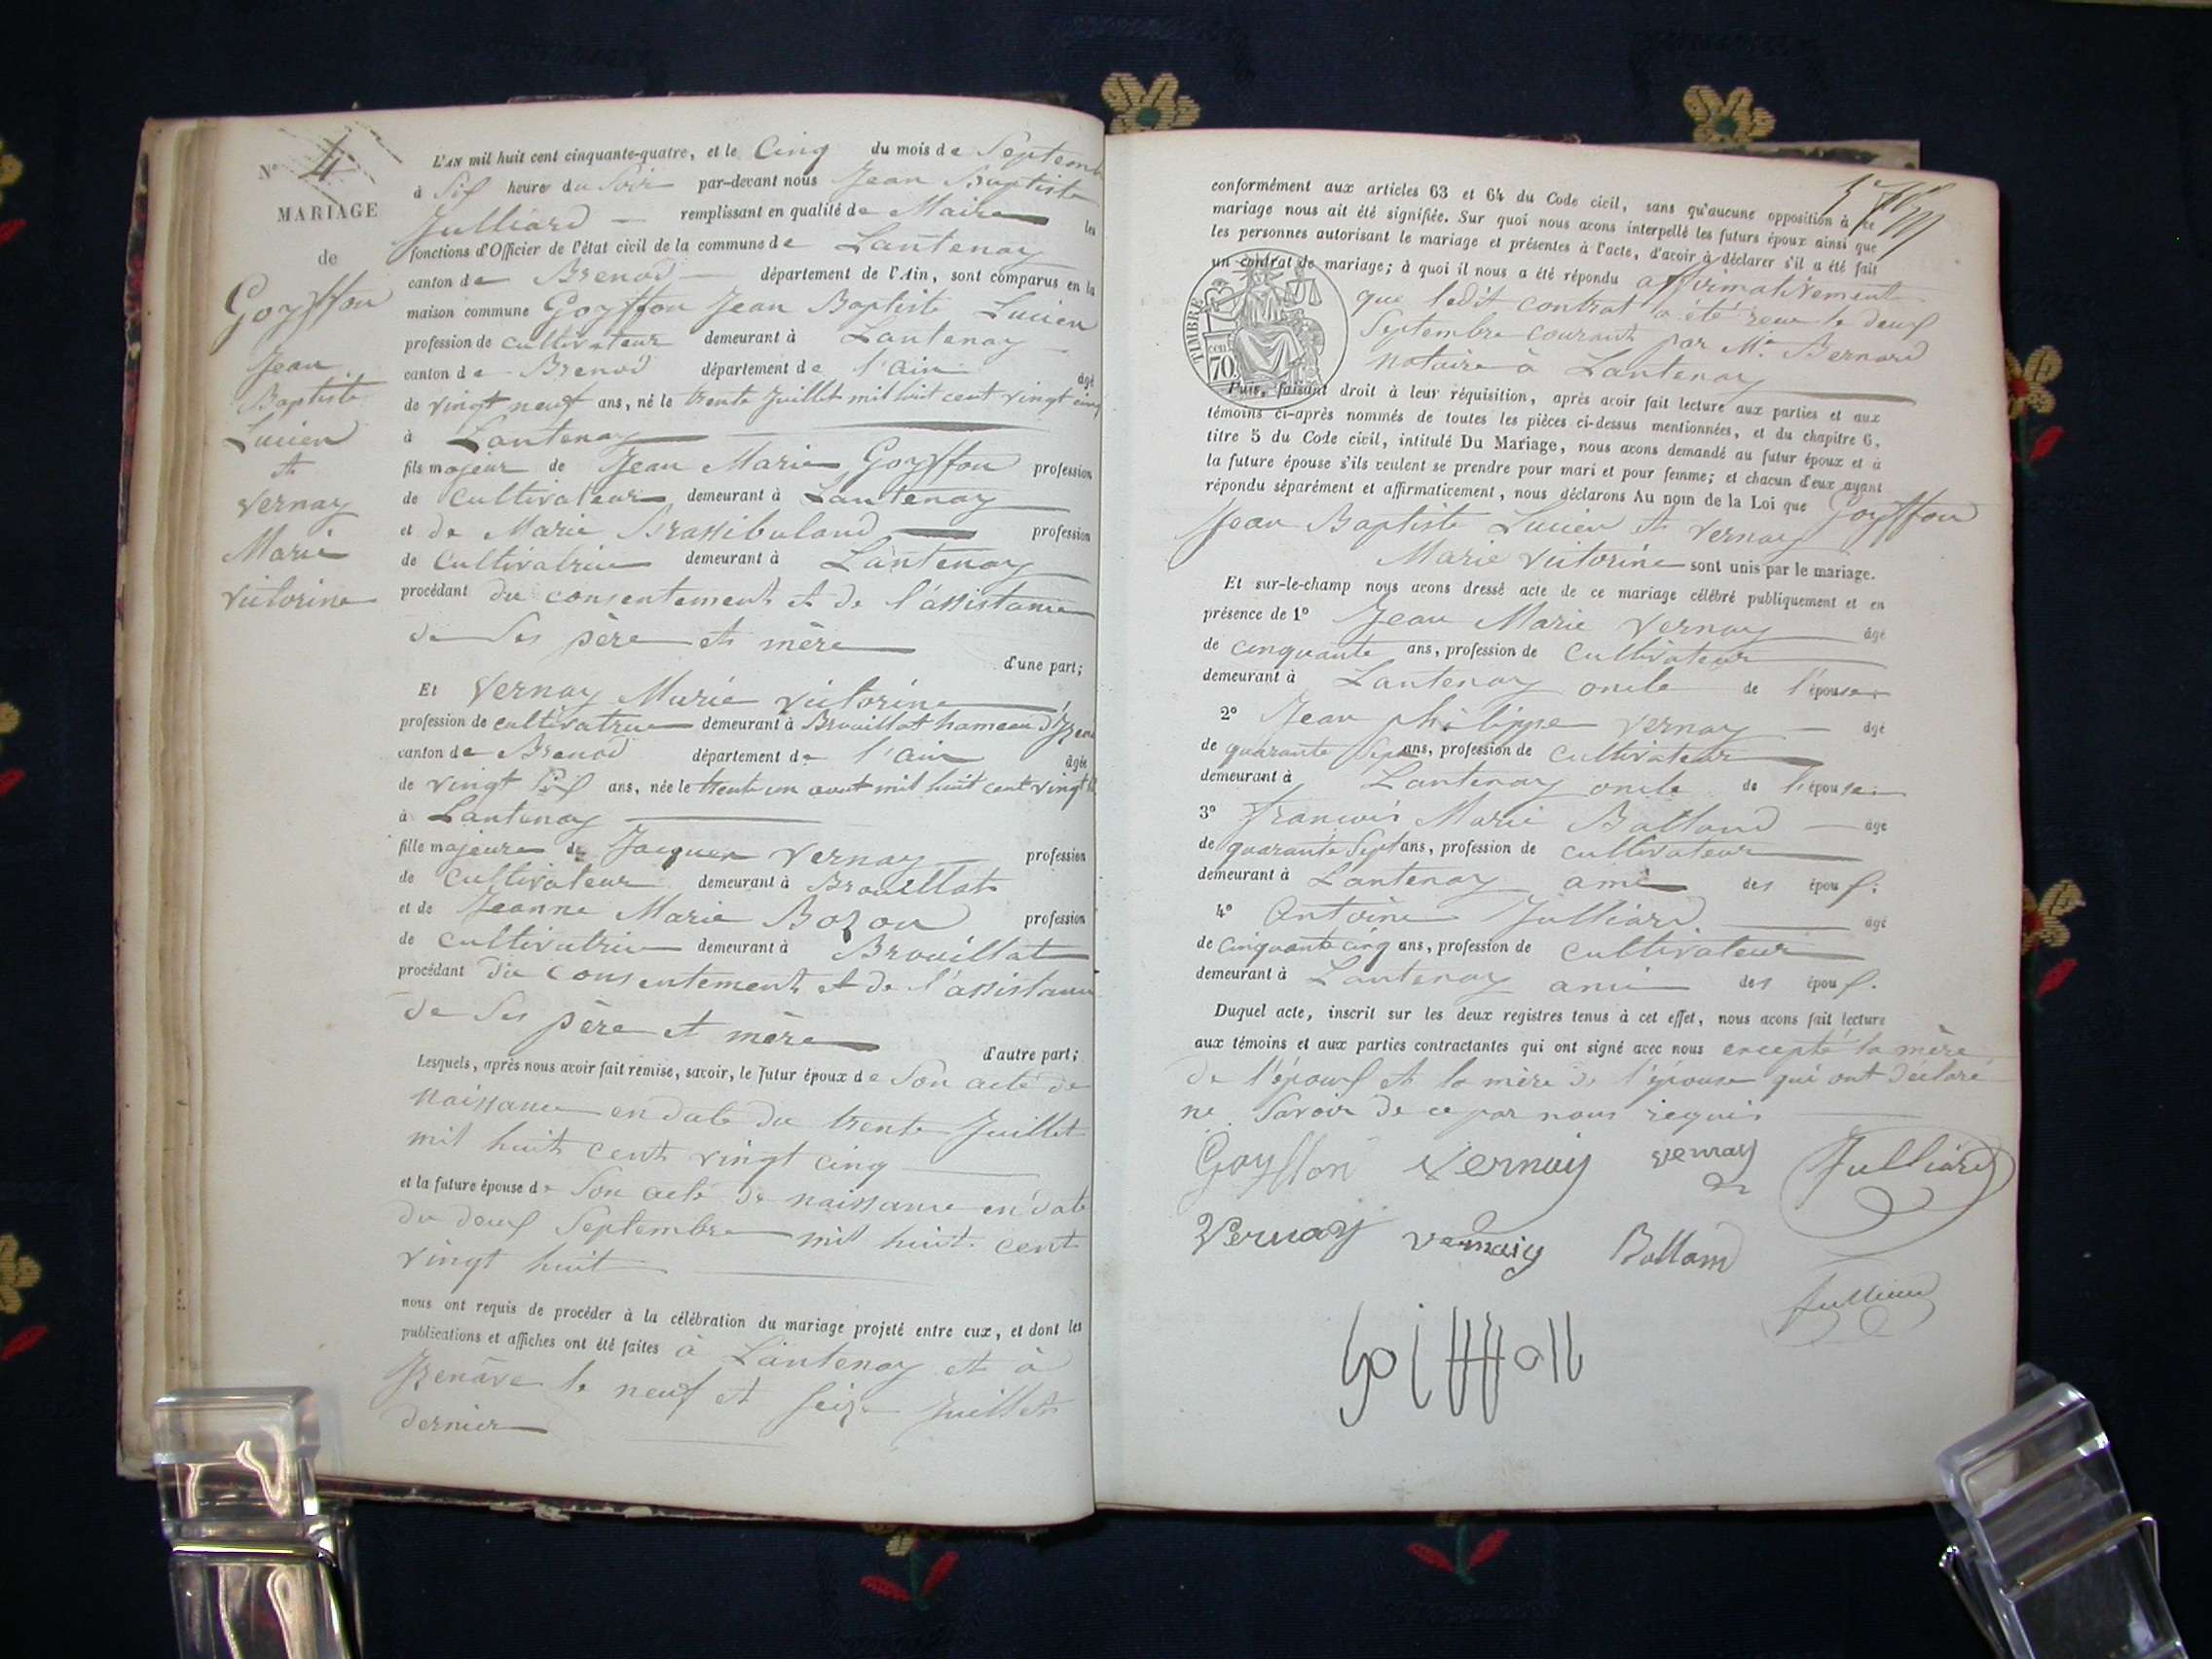 N° 4
MARIAGE
de
Goyffon
Jean
Baptiste
Lucien
et
Vernay
Marie
Victorine
L'AN mil huit cent cinquante-quatre, et le Cinq du mois de Septemb
à Six heures du Soir par-devant nous Jean Baptiste
Julliard remplissant en qualité de Maire les
fonctions d'Officier de l'état civil de la commune de Lantenay
canton de Brenod département de l'Ain, sont comparus en la
maison commune Goyffon Jean Baptiste Lucien
profession de cultivateur demeurant à Lantenay
canton de Brenod département de l'ain âgé
de vingt neuf ans, né le trente Juillet mil huit cent vingt cinq
à Lantenay
fils majeur de Jean Marie Goyffon profession
de Cultivateur demeurant à Lantenay
et de Marie Brassibuland profession
de Cultivatrice demeurant à Lantenay
procédant du consentement et de l'assistance
de Ses père et mère
d'une part;
Et Vernay Marie Victorine
profession de cultivatrice demeurant à Brouillat hameau d'Izen
canton de Brenod département de l'ain âgée
de vingt Six ans, née le trente un aout mil huit cent vingt
à Lantenay
fille majeure de Jacques Vernay profession
de Cultivateur demeurant à Brouillat
et de Jeanne Marie Bozon profession
de cultivatrice demeurant à Brouillat
procédant du consentement et de l'assistance
de Ses père et mère
d'autre part;
Lesquels, après nous avoir fait remise, savoir, le futur époux de Son acte de
naissance en date du trente Juillet
mil huit cent vingt cinq
et la future épouse de Son acte de naissance en date
du deux Septembre mil huit cent
vingt huit
nous ont requis de procéder à la célébration du mariage projeté entre eux, et dont les
publications et affiches ont été faites à Lantenay et à
Izenave le neuf et Seize Juillet
dernier
conformément aux articles 63 et 64 du Code civil, sans qu'aucune opposition à ce
mariage nous ait été signifiée. Sur quoi nous avons interpellé les futurs époux ainsi que
les personnes autorisant le mariage et présentes à l'acte, d'avoir à déclarer s'il a été fait
un contrat de mariage; à quoi il nous a été répondu affirmativement
que ledit contrat a été reçu le deux
Septembre courant par Me Bernard
notaire à Lantenay
TIMBRE
70 cen
Puis, faisant droit à leur réquisition, après avoir fait lecture aux parties et aux
témoins ci-après nommés de toutes les pièces ci-dessus mentionnées, et du chapitre 6,
titre 5 du Code civil, intitulé Du Mariage, nous avons demandé au futur époux et à
la future épouse s'ils veulent se prendre pour mari et pour femme; et chacun d'eux ayant
répondu séparément et affirmativement, nous déclarons Au nom de la Loi que Goyffon
Jean Baptiste Lucien et Vernay
Marie Victorine sont unis par le mariage.
Et sur-le-champ nous avons dressé acte de ce mariage célébré publiquement et en
présence de 1° Jean Marie Vernay âgé
de cinquante ans, profession de Cultivateur
demeurant à Lantenay oncle de l'épouse
2° Jean philippe Vernay âgé
de quarante Sept ans, profession de Cultivateur
demeurant à Lantenay oncle de l'épouse
3° François Marie Balland âgé
de quarante Sept ans, profession de cultivateur
demeurant à Lantenay ami des époux.
4° Antoine Julliard âgé
de Cinquante cinq ans, profession de cultivateur
demeurant à Lantenay ami des époux.
Duquel acte, inscrit sur les deux registres tenus à cet effet, nous avons fait lecture
aux témoins et aux parties contractantes qui ont signé avec nous excepté la mère
de l'époux et la mère de l'épouse qui ont déclaré
ne Savoir de ce par nous requis
Goyffon Vernay vernay Julliard
Vernay vernaiy Balland
Julliard
goiffon